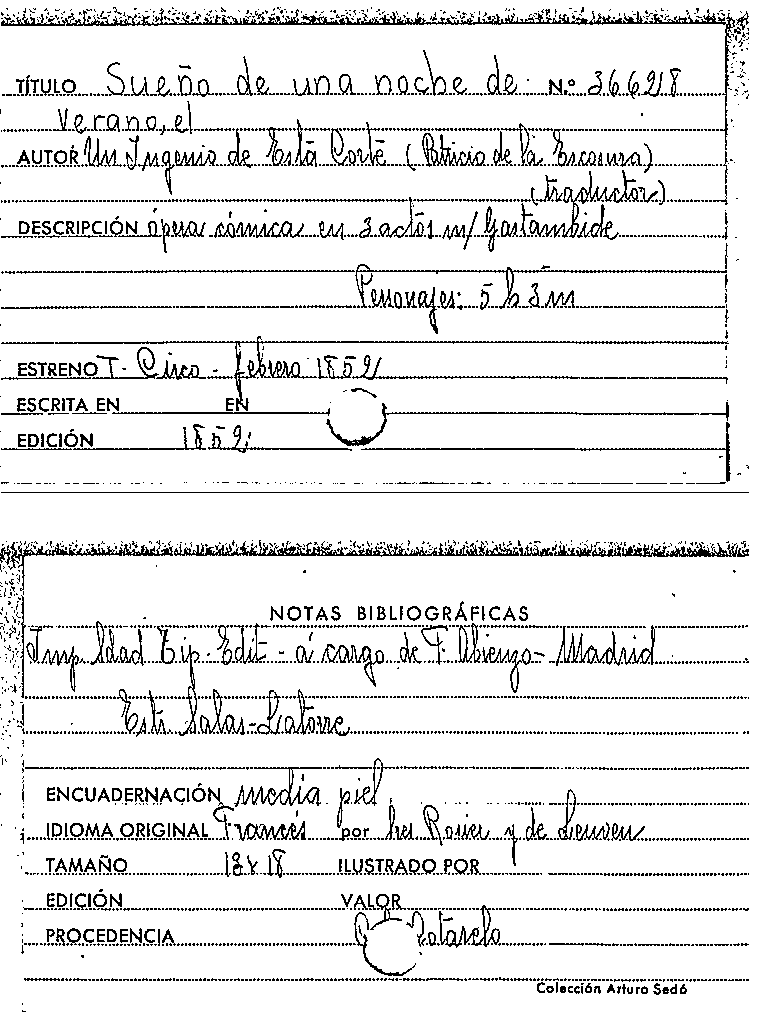 TÍTULO Sueño de una noche de N.º 366218
Verano, el
AUTOR Un Ingenio de Esta Corte (Patricio de la Escosura)
(traductor)
DESCRIPCIÓN ópera cómica en 3 actos m/ Gaztambide
Personajes: 5 h 3 m
ESTRENO T. Circo - febrero 1852
ESCRITA EN EN
EDICIÓN 1852
NOTAS BIBLIOGRÁFICAS
Imp Sdad Tip. Edit - á cargo de F. Abienzo - Madrid
Estr Salas-Latorre
ENCUADERNACIÓN media piel
IDIOMA ORIGINAL Francés por Rosier y de Leuven
TAMAÑO 18 ILUSTRADO POR
EDICIÓN VALOR
PROCEDENCIA Cotarelo
Colección Arturo Sedó